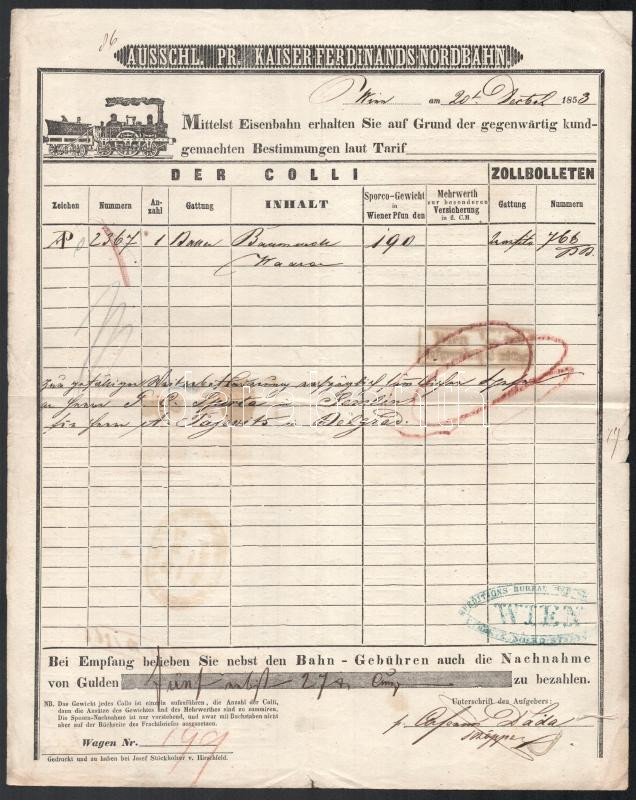 86
AUSSCHL. PR. KAISER FERDINANDS NORDBAHN.
Wien am 20t. Decbr 1853
Mittelst Eisenbahn erhalten Sie auf Grund der gegenwärtig kund-
gemachten Bestimmungen laut Tarif
DER COLLI ZOLLBOLLETEN
Zeichen Nummern An-zahl Gattung INHALT Sporco-Gewicht in Wiener Pfunden Mehrwerth zur besonderen Versicherung in fl. C.M. Gattung Nummern
AP 2367 1 Ballen Baumwoll 190 Transito 766
Waaren
zur gefälligen
an Herrn in Semlin
für Herrn A. in Belgrad.
SPEDITIONS BUREAU
WIEN
Bei Empfang belieben Sie nebst den Bahn-Gebühren auch die Nachnahme
von Gulden fünf nebst 27 x Cmz zu bezahlen.
NB. Das Gewicht jedes Collo ist einzeln aufzuführen, die Anzahl der Colli,
dann die Ansätze des Gewichtes und des Mehrwerthes sind zu summiren.
Die Spesen-Nachnahme ist nur vorstehend, und zwar mit Buchstaben nicht
aber auf der Rückseite des Frachtbriefes auszusetzen.
Unterschrift des Aufgebers:
Wagen Nr. 199
Gedruckt und zu haben bei Josef Stöckholzer v. Hirschfeld.